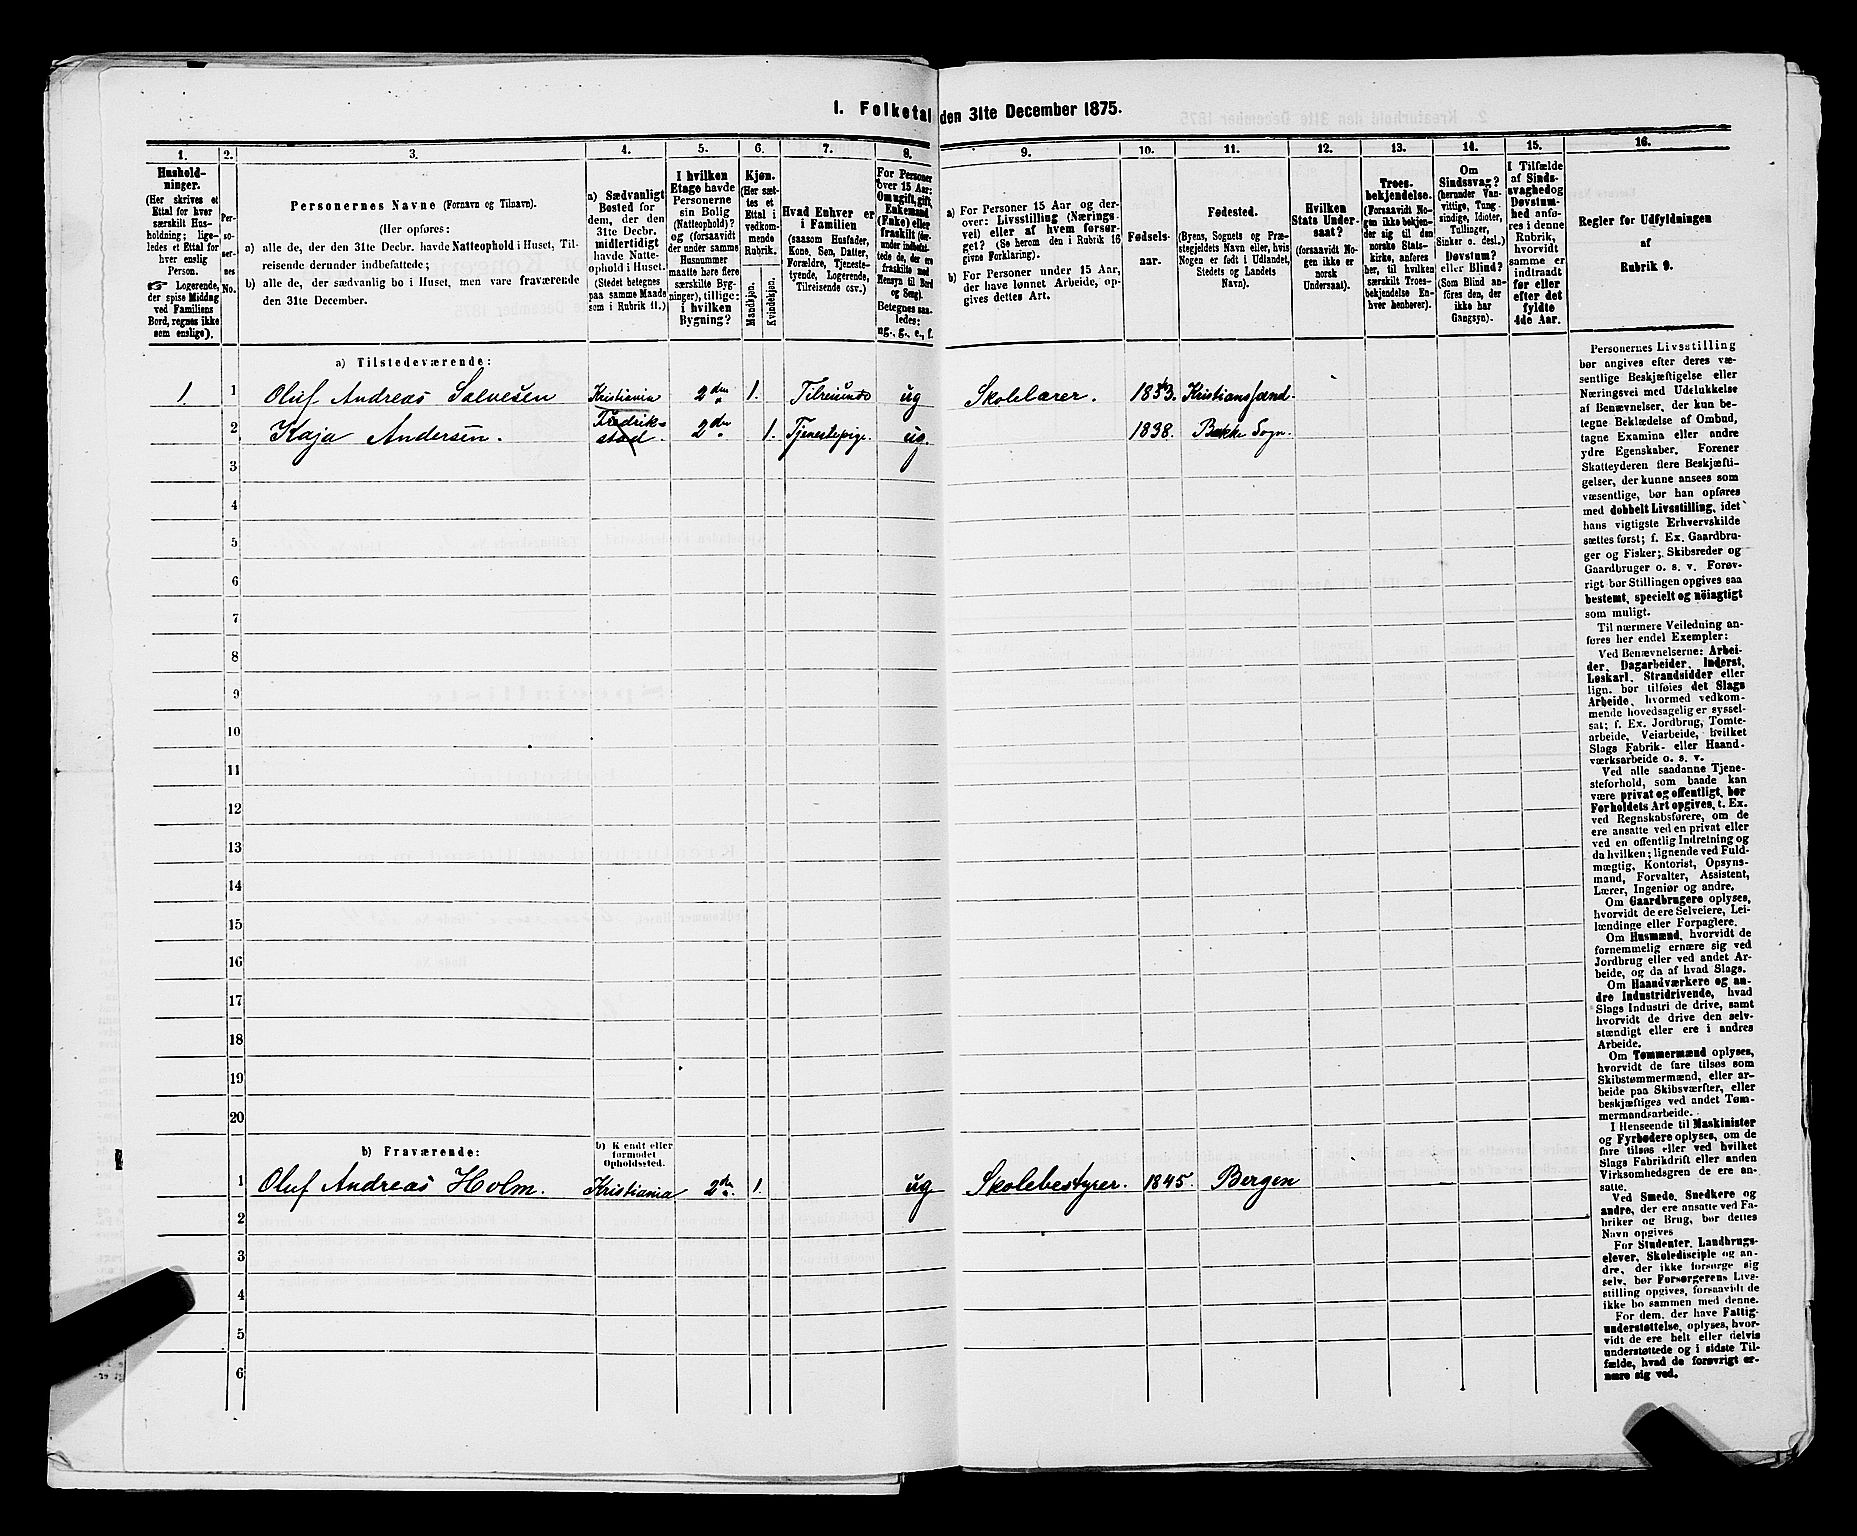 1. Folketal den 31te December 1875.
1. 2. 3. 4. 5. 6. 7. 8. 9. 10. 11. 12. 13. 14. 15. 16.
Hushold-
ninger.
(Her skrives et
Ettal for hver
særskilt Hus-
holdning; lige-
ledes et Ettal for
hver enslig
Person.
☞ Logerende,
der spise Middag
ved Familiens
Bord, regnes ikke
som enslige).
Per-
so-
ner-
nes
No.
Personernes Navne (Fornavn og Tilnavn).
(Her opføres:
a) alle de, der den 31te Decbr. havde Natteophold i Huset, Til-
reisende derunder indbefattede;
b) alle de, der sædvanlig bo i Huset, men vare fraværende
den 31te December.
a) Sædvanligt
Bosted for
dem, der den
31te Decbr.
midlertidigt
havde Natte-
ophold i Huset.
(Stedet betegnes
paa samme Maade
som i Rubrik 11.)
I hvilken
Etage havde
Personerne
sin Bolig
(Natteophold)?
og (forsaavidt
der under samme
Husnummer
maatte høre flere
særskilte Byg-
ninger), tillige:
i hvilken
Bygning?
Kjøn.
(Her sæt-
tes et
Ettal i
vedkom-
mende
Rubrik.
Mandkjøn.
Kvindekjøn.
Hvad Enhver er
i Familien
(saasom Husfader,
Kone, Søn, Datter,
Forældre, Tjeneste-
tyende, Logerende,
Tilreisende osv.)
For Personer
over 15 Aar:
Om ugift, gift,
Enkemand
(Enke) eller
fraskilt (her-
under indbefat-
tede de, der ere
fraskilte med
Hensyn til Bord
og Seng).
Betegnes saa-
ledes:
ug., g., e., f.
a) For Personer 15 Aar og der-
over: Livsstilling (Nærings-
vei) eller af hvem forsør-
get? (Se herom den i Rubrik 16
givne Forklaring).
b) For Personer under 15 Aar,
der have lønnet Arbeide, op-
gives dettes Art.
Fødsels-
aar.
Fødested.
(Byens, Sognets og Præ-
stegjeldets Navn eller, hvis
Nogen er født i Udlandet,
Stedets og Landets
Navn).
Hvilken
Stats Under-
saat?
(forsaavidt No-
gen ikke er
norsk
Undersaat).
Troes-
bekjendelse.
(Forsaavidt No-
gen ikke bekjen-
der sig til den
norske Stats-
kirke, anføres
her, til hvilken
særskilt Troes-
bekjendelse En-
hver henhører).
Om
Sindssvag?
(herunder Van-
vittige, Tung-
sindige, Idioter,
Tullinger,
Sinker o. desl.)
Døvstum?
eller Blind?
(Som Blind an-
føres den, der
ikke har
Gangsyn).
I Tilfælde
af Sinds-
svaghed og
Døvstum-
hed anfø-
res i denne
Rubrik,
hvorvidt
samme er
indtraadt
før eller
efter det
fyldte
4de Aar.
Regler for Udfyldningen
af
Rubrik 9.
a) Tilstedeværende:
1. 1 Oluf Andreas Salvesen Kristiania 2den 1. Tilreisende ug Skolelærer. 1853. Kristianssand.
2 Kaja Andersen. Fredrik-
stad. 2den 1. Tjenestepige. ug. 1838. Bakke Sogn.
3
4
5
6
7
8
9
10
11
12
13
14
15
16
17
18
19
20
b) Fraværende:
b) Kjendt eller
formodet
Opholdssted.
1 Oluf Andreas Holm. Kristiania 2den 1. ug Skolebestyrer. 1845. Bergen
2
3
4
5
6
Personernes Livsstilling
bør angives efter deres væ-
sentlige Beskjæftigelse eller
Næringsvei med Udelukkelse
af Benævnelser, der kun be-
tegne Beklædelse af Ombud,
tagne Examina eller andre
ydre Egenskaber. Forener
Skatteyderen flere Beskjæfti-
gelser, der kunne ansees som
væsentlige, bør han opføres
med dobbelt Livsstilling, idet
hans vigtigste Erhvervskilde
sættes først; f. Ex. Gaardbru-
ger og Fisker; Skibsreder og
Gaardbruger o. s. v. Forøv-
rigt bør Stillingen opgives saa
bestemt, specielt og nöiagtigt
som muligt.
Til nærmere Veiledning an-
føres her endel Exempler:
Ved Benævnelserne: Arbei-
der, Dagarbeider, Inderst,
Løskarl, Strandsidder eller
lign. bør tilføies det Slags
Arbeide, hvormed vedkom-
mende hovedsagelig er syssel-
sat; f. Ex. Jordbrug, Tomte-
arbeide, Veiarbeide, hvilket
Slags Fabrik- eller Haand-
værksarbeide o. s. v.
Ved alle saadanne Tjene-
steforhold, som baade kan
være privat og offentligt, bør
Forholdets Art opgives, t. Ex.
ved Regnskabsførere, om de
ere ansatte ved en privat eller
ved en offentlig Indretning og
da hvilken; lignende ved Fuld-
mægtig, Kontorist, Opsyns-
mand, Forvalter, Assistent,
Lærer, Ingeniør og andre.
Om Gaardbrugere oplyses,
hvorvidt de ere Selveiere, Lei-
lændinge eller Forpagtere.
Om Husmænd, hvorvidt de
fornemmelig ernære sig ved
Jordbrug eller ved andet Ar-
beide, og da af hvad Slags.
Om Haandværkere og an-
dre Industridrivende, hvad
Slags Industri de drive, samt
hvorvidt de drive den selv-
stændigt eller ere i andres
Arbeide.
Om Tømmermænd oplyses,
hvorvidt de fare tilsøs som
Skibstømmermænd, eller ar-
beide paa Skibsværfter, eller
beskjæftiges ved andet Tøm-
mermandsarbeide.
I Henseende til Maskinister
og Fyrbødere oplyses, om de
fare tilsøs eller ved hvilket
Slags Fabrikdrift eller anden
Virksomhedsgren de ere an-
satte.
Ved Smede, Snedkere og
andre, der ere ansatte ved Fa-
briker og Brug, bør dettes
Navn opgives
For Studenter, Landbrugs-
elever, Skoledisciple og an-
dre, der ikke forsørge sig
selv, bør Forsørgerens Livs-
stilling opgives, forsaavidt de
ikke bo sammen med denne.
For dem, der have Fattig-
understøttelse, oplyses, hvor-
vidt de ere helt eller delvis
understøttede og i sidste Til-
fælde, hvad de forøvrigt er-
nære sig ved.